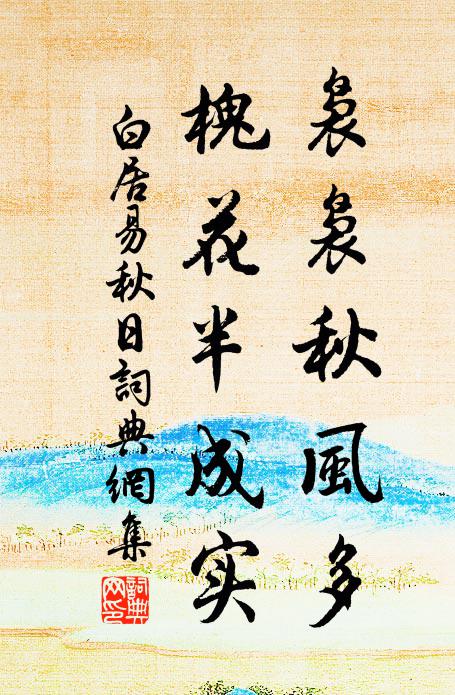 袅袅秋風多
槐花半成实
白居易秋日詞典網集
詞典網印